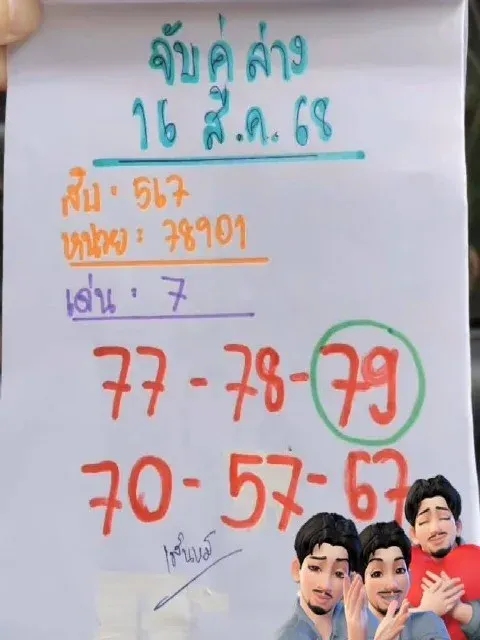 จับคู่ล่าง
16 ส.ค. 68
สิบ · 567
หน่วย : 78901
เด่น · 7
77 - 78 - 79
70 - 57 - 67